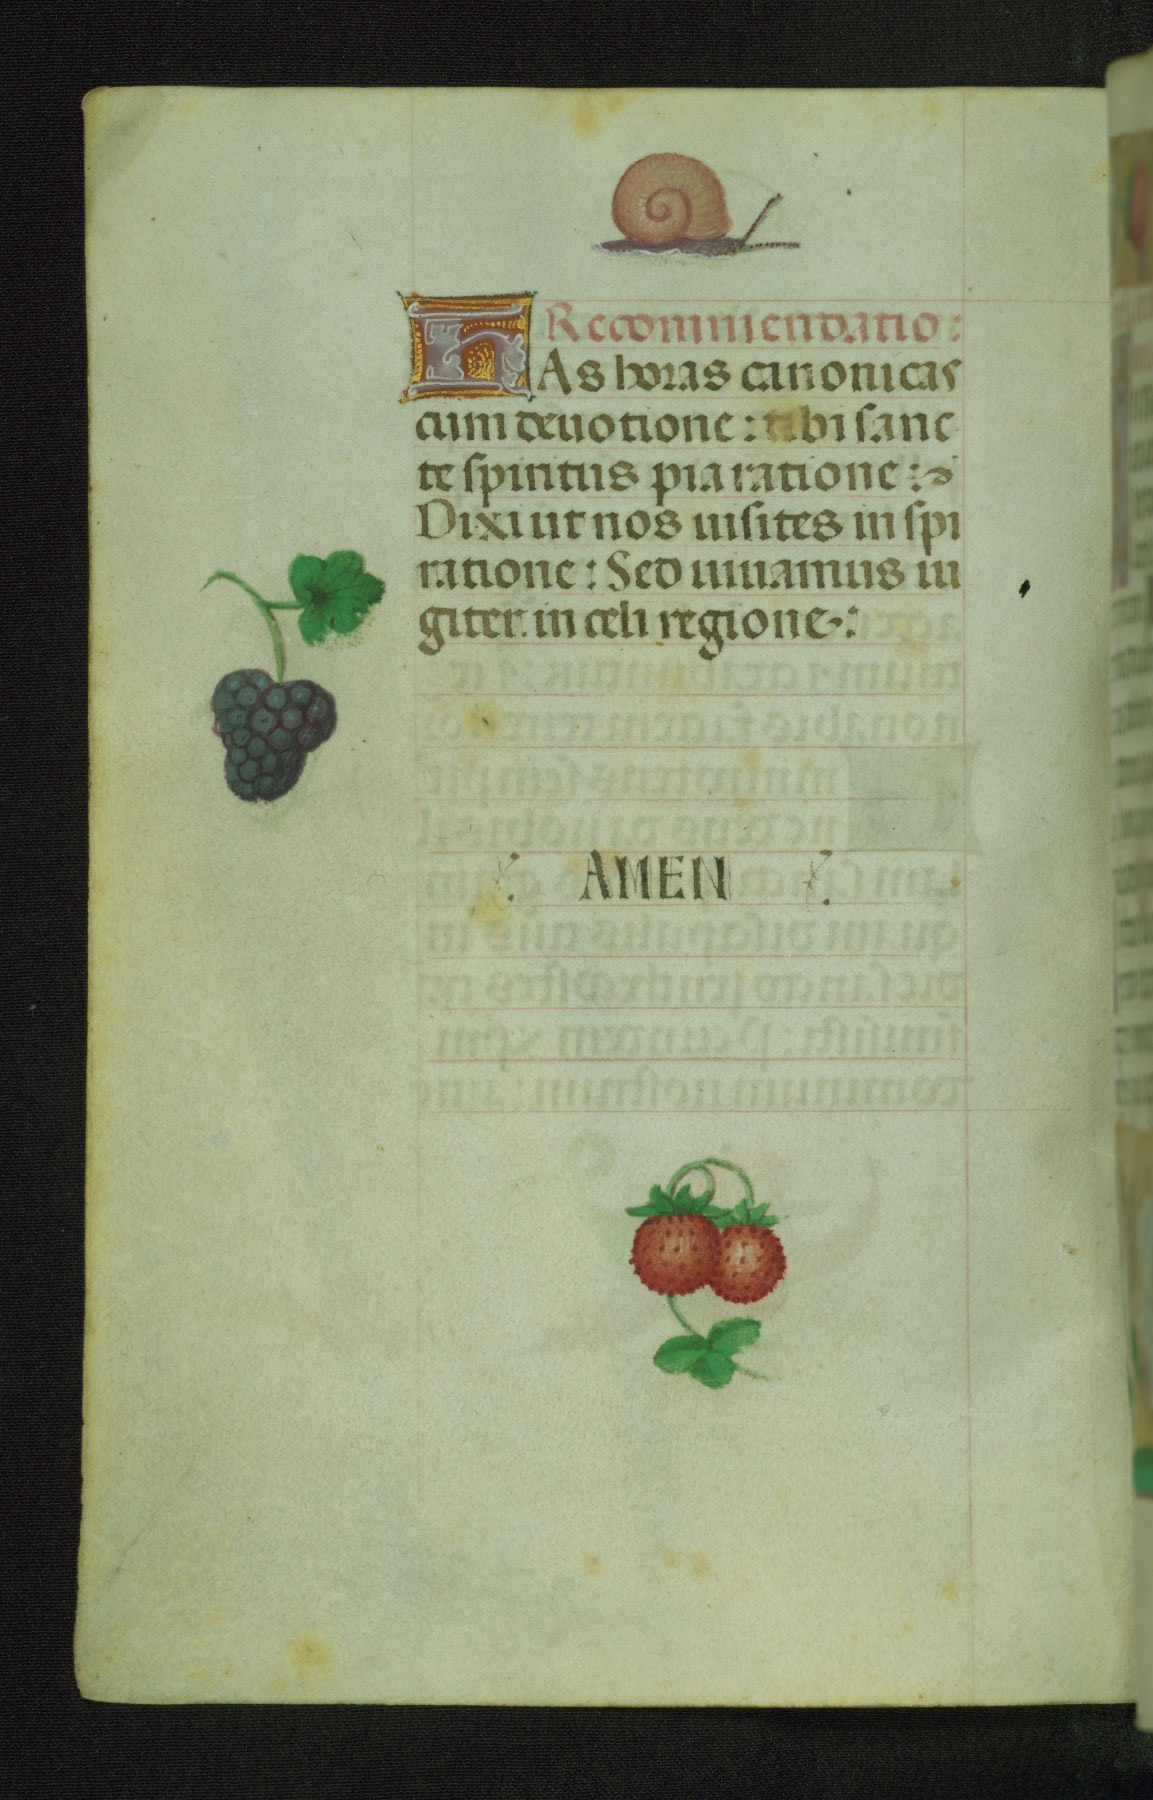 Recommendatio:
HAs horas canonicas
cum deuotione: tibi sanc
te spiritus pia ratione:
Dixi ut nos uisites inspi
ratione: Sed uiuamus iu
giter in celi regione:
AMEN